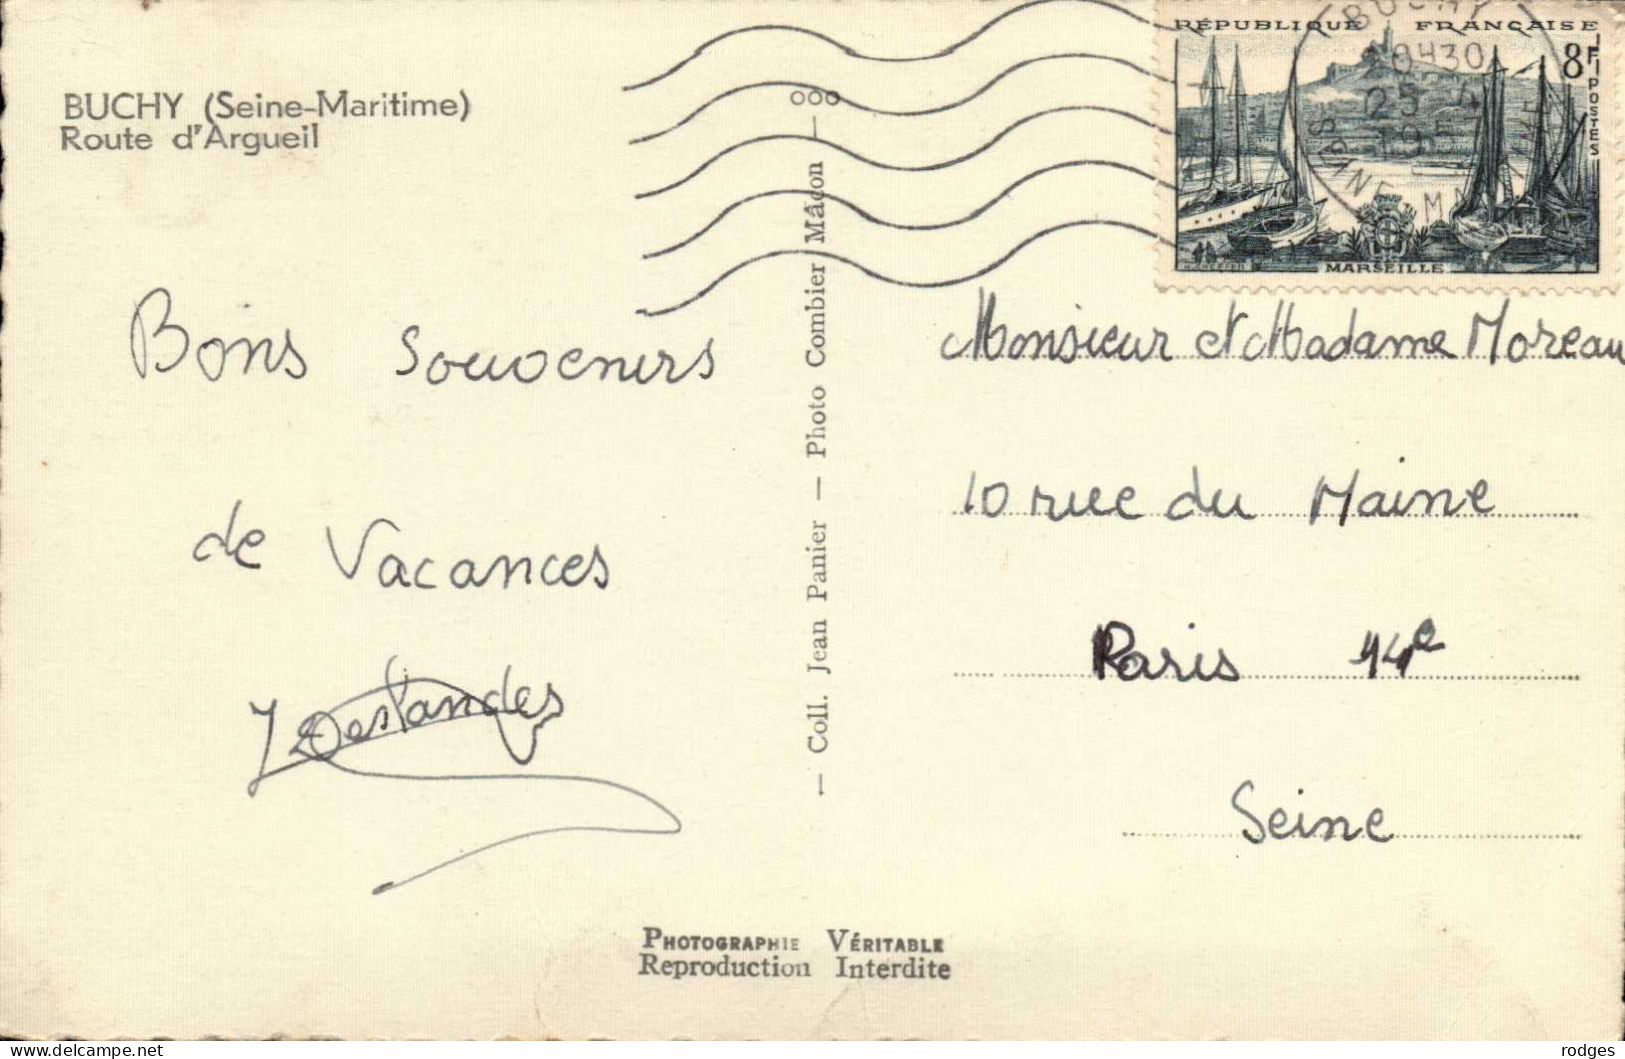 BUCHY (Seine-Maritime)
Route d'Argueil
Bons Souvenirs
de Vacances
Deslandes
ooo
— Coll. Jean Panier — Photo Combier Mâcon —
RÉPUBLIQUE FRANÇAISE
8F
POSTES
MARSEILLE
BUCHY
20H30
25 4
195
SEINE MME
Monsieur et Madame Moreau
10 rue du Maine
Paris 14e
Seine
PHOTOGRAPHIE VÉRITABLE
Reproduction Interdite
delcampe.net
rodges